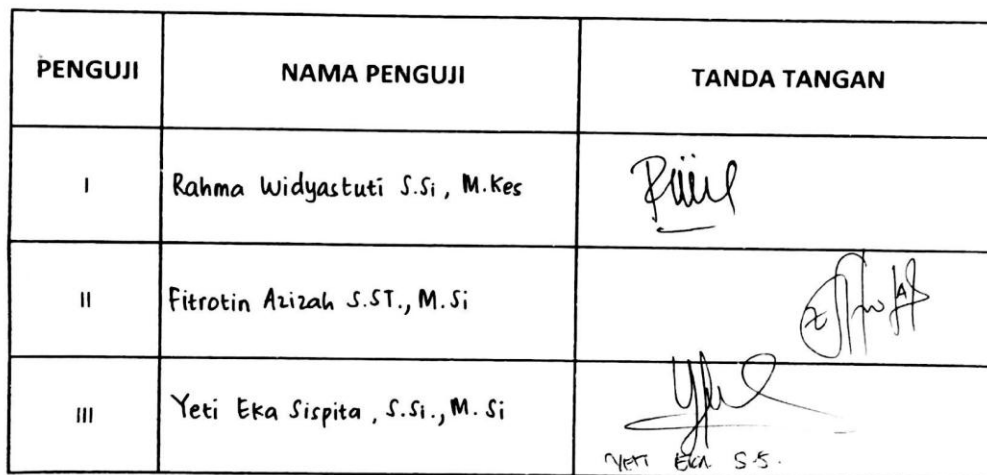 PENGUJI NAMA PENGUJI TANDA TANGAN
I Rahma Widyastuti S.Si, M.Kes
II Fitrotin Azizah S.ST., M.Si
III Yeti Eka Sispita, S.Si., M.Si
YETI EKA S.S.